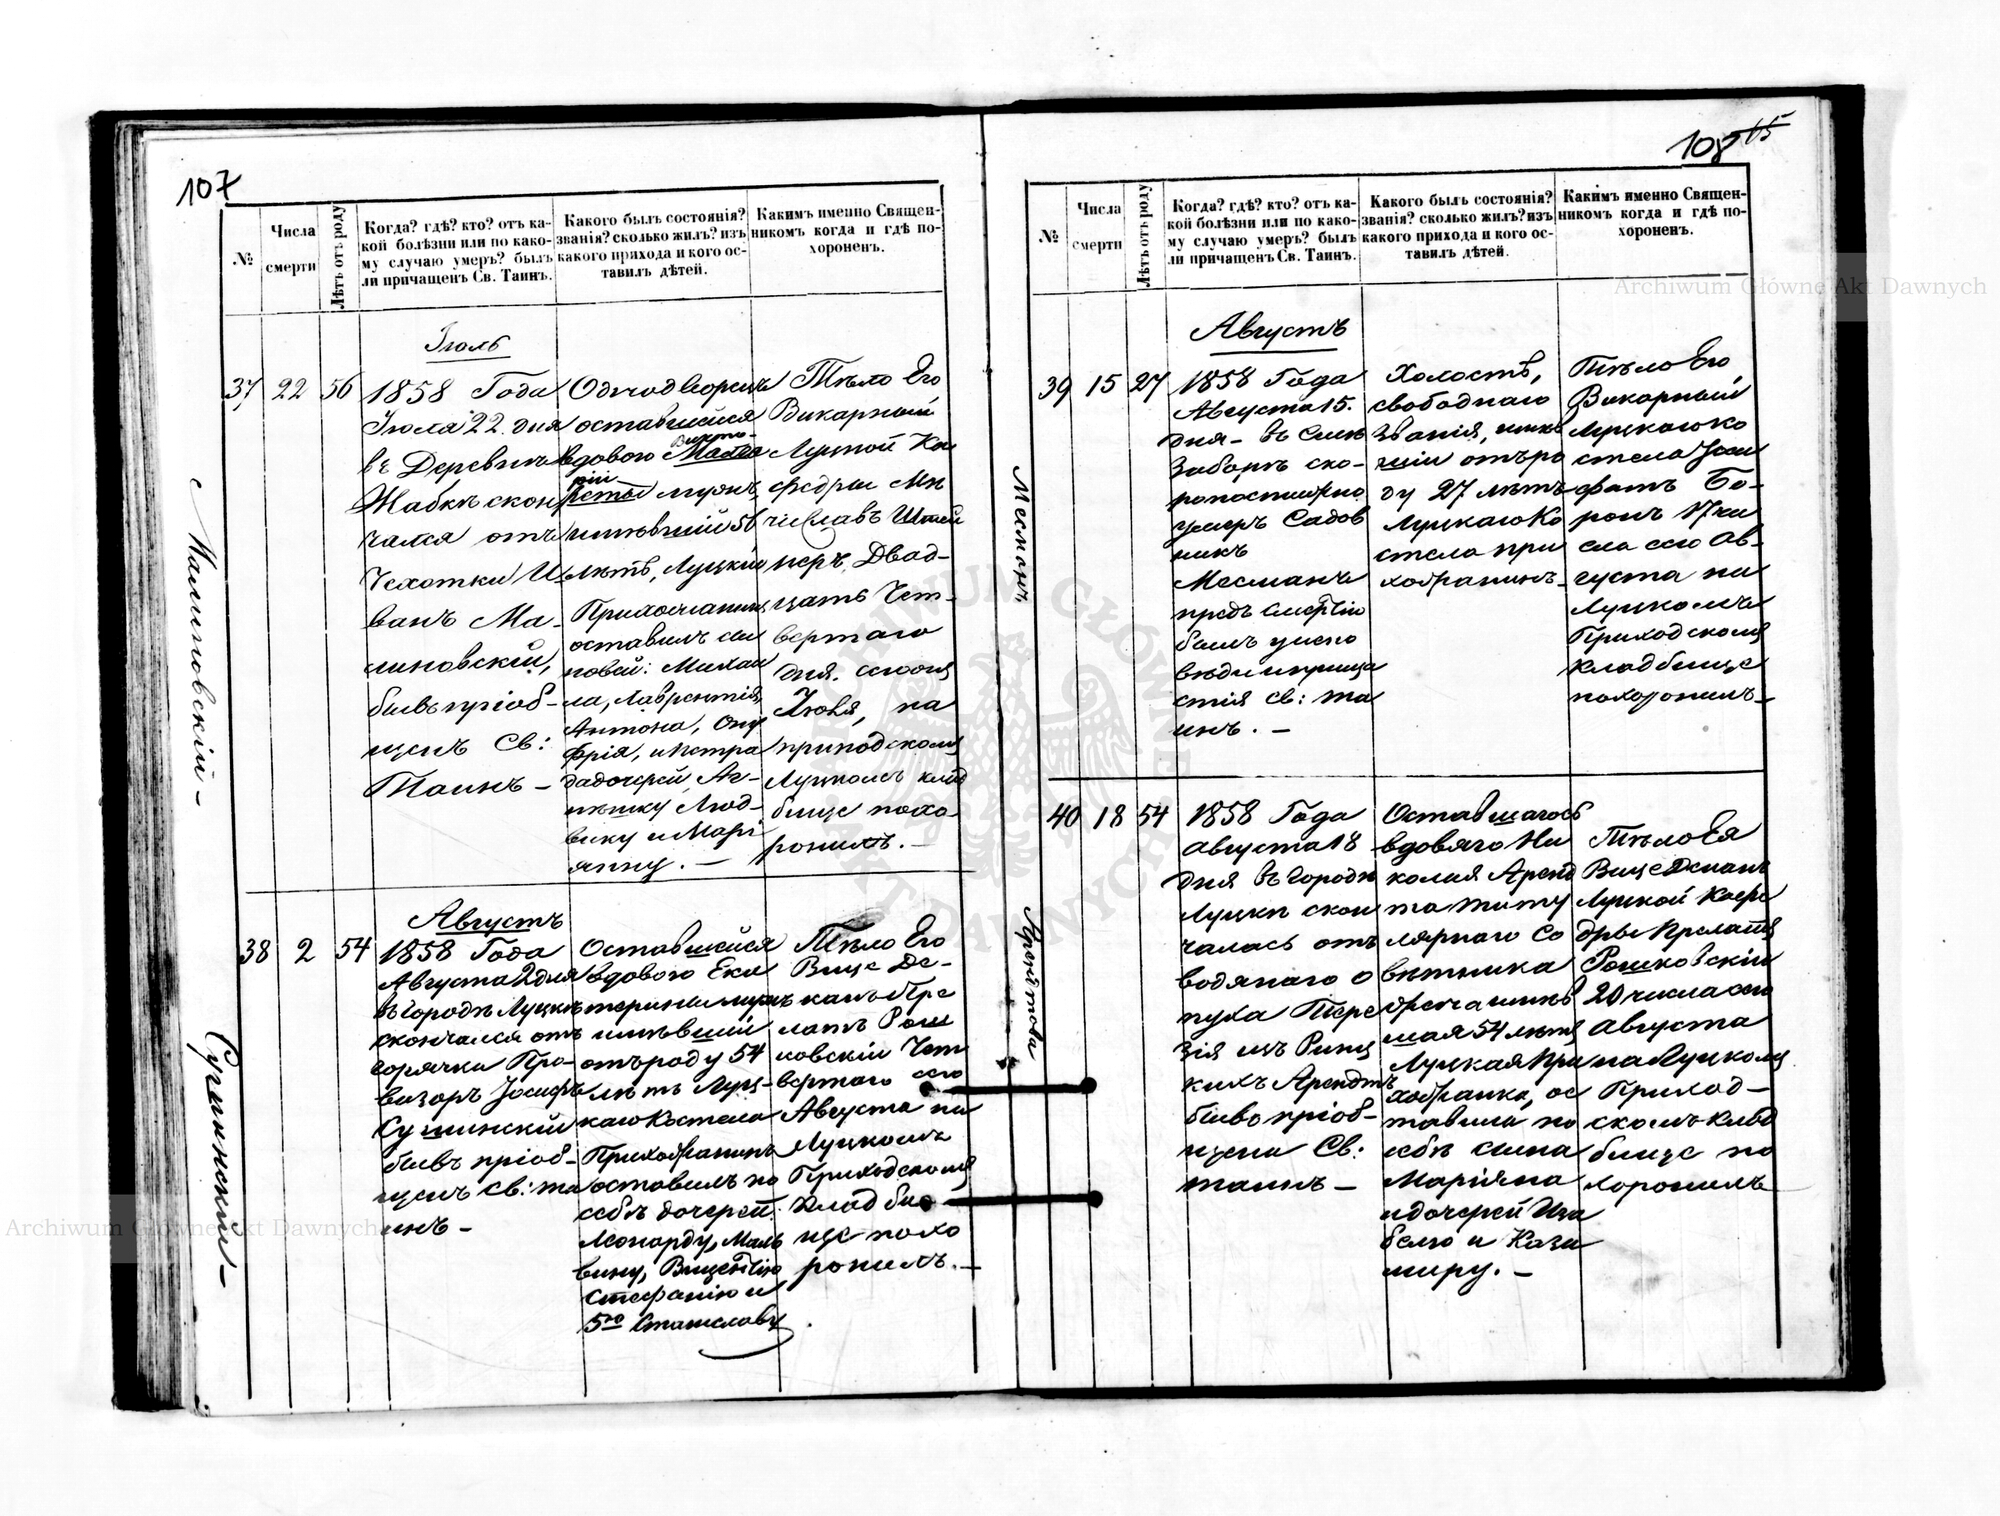 107
№
Числа
смерти
Лѣтъ отъ роду
Когда? гдѣ? кто? отъ ка-
кой болѣзни или по како-
му случаю умеръ? былъ
ли причащенъ Св. Таинъ.
Какого былъ состоянія?
званія? сколько жилъ? изъ
какого прихода и кого ос-
тавилъ дѣтей.
Какимъ именно Священ-
никомъ когда и гдѣ по-
хороненъ.
Малиновскій -
Іюль
37
22
56
1858 Года
Іюля 22 дня
въ Деревнѣ
Жабкѣ скон
чался отъ
Чехотки И
ванъ Ма-
линовскій,
бывъ пріоб-
щенъ Св:
Таинъ -
Однодворецъ
оставшейся
вдовою
мужъ,
имѣвшій 56
лѣтъ, Луцкій
Прихожанинъ
оставилъ сы
новей: Михаи
ла, Лаврентія,
Антона, Ону
фрія, и Петра
да дочерей, Аг-
нѣшку Люд-
вику и Марі
янну. -
Тѣло Его
Викарный
Луцкой Ка
федры Ме
числавъ Штей
неръ, Двад-
цать Чет-
вертаго
дня, сього
Іюля, на
приходскомъ
Луцкомъ клад
бище похо
ронилъ. -
Сущинскій -
Августъ
38
2
54
1858 Года
Августа 2 дня
въ городѣ Луцкѣ
скончался отъ
горячки Про-
визоръ Іосифъ
Сущинскій
бывъ пріоб-
щенъ Св: та
инъ -
Оставшейся
вдовою Ека
терины мужъ
имѣвшій
отъ роду 54
лѣтъ Луц-
каго Костела
Прихожанинъ
оставилъ по
себѣ дочерей:
Леонарду, Маль
вину, Винцентію
Стефанію и
5го Станиславу.
Тѣло Его
Вице Де-
канъ Пре
латъ Рош
ковскій Чет
вертаго сего
Августа на
Луцкомъ
Приходскомъ
Кладби
ще похо
ронилъ. -
108 65
№
Числа
смерти
Лѣтъ отъ роду
Когда? гдѣ? кто? отъ ка-
кой болѣзни или по како-
му случаю умеръ? былъ
ли причащенъ Св. Таинъ.
Какого былъ состоянія?
званія? сколько жилъ? изъ
какого прихода и кого ос-
тавилъ дѣтей.
Какимъ именно Священ-
никомъ когда и гдѣ по-
хороненъ.
Августъ
39
15
27
1858 Года
Августа 15.
дня - въ Селѣ
Заборѣ ско-
ропостижно
умеръ Садов
никъ
Месманъ
предъ смертію
былъ у испо
вѣди и прича
стія Св: та
инъ. -
Холостъ,
свободнаго
званія, имѣв
шій отъ ро
ду 27 лѣтъ
Луцкаго Ко
стела при
хожанинъ -
Тѣло Его,
Викарный
Луцкаго ко
стела Іоса
фатъ Бо-
ронъ 17 чи
сла сего Ав-
густа на
Луцкомъ
Приходскомъ
кладбище
похоронилъ -
Арендтова
40
18
54
1858 Года
августа 18
дня въ городѣ
Луцкѣ скон
чалась отъ
водянаго о
пуха Тере
зія изъ
Арендтъ
бывъ пріоб-
щена Св:
таинъ -
Оставшагось
вдоваго Ни
колая Аренд
та титу
лярнаго Со
вѣтника
имѣв
шая 54 лѣтъ
Луцкая При
хожанка, ос
тавила по
себѣ сына
Маріяна
и дочерей Иза
белю и Кази
миру. -
Тѣло Ея
Вице Деканъ
Луцкой Кафе
дры Прелатъ
Рошковскій
20 числа сего
Августа
на Луцкомъ
Приход-
скомъ клад
бище по
хоронилъ
Archiwum Główne Akt Dawnych
Archiwum Główne Akt Dawnych
ARCHIWUM GŁÓWNE AKT DAWNYCH